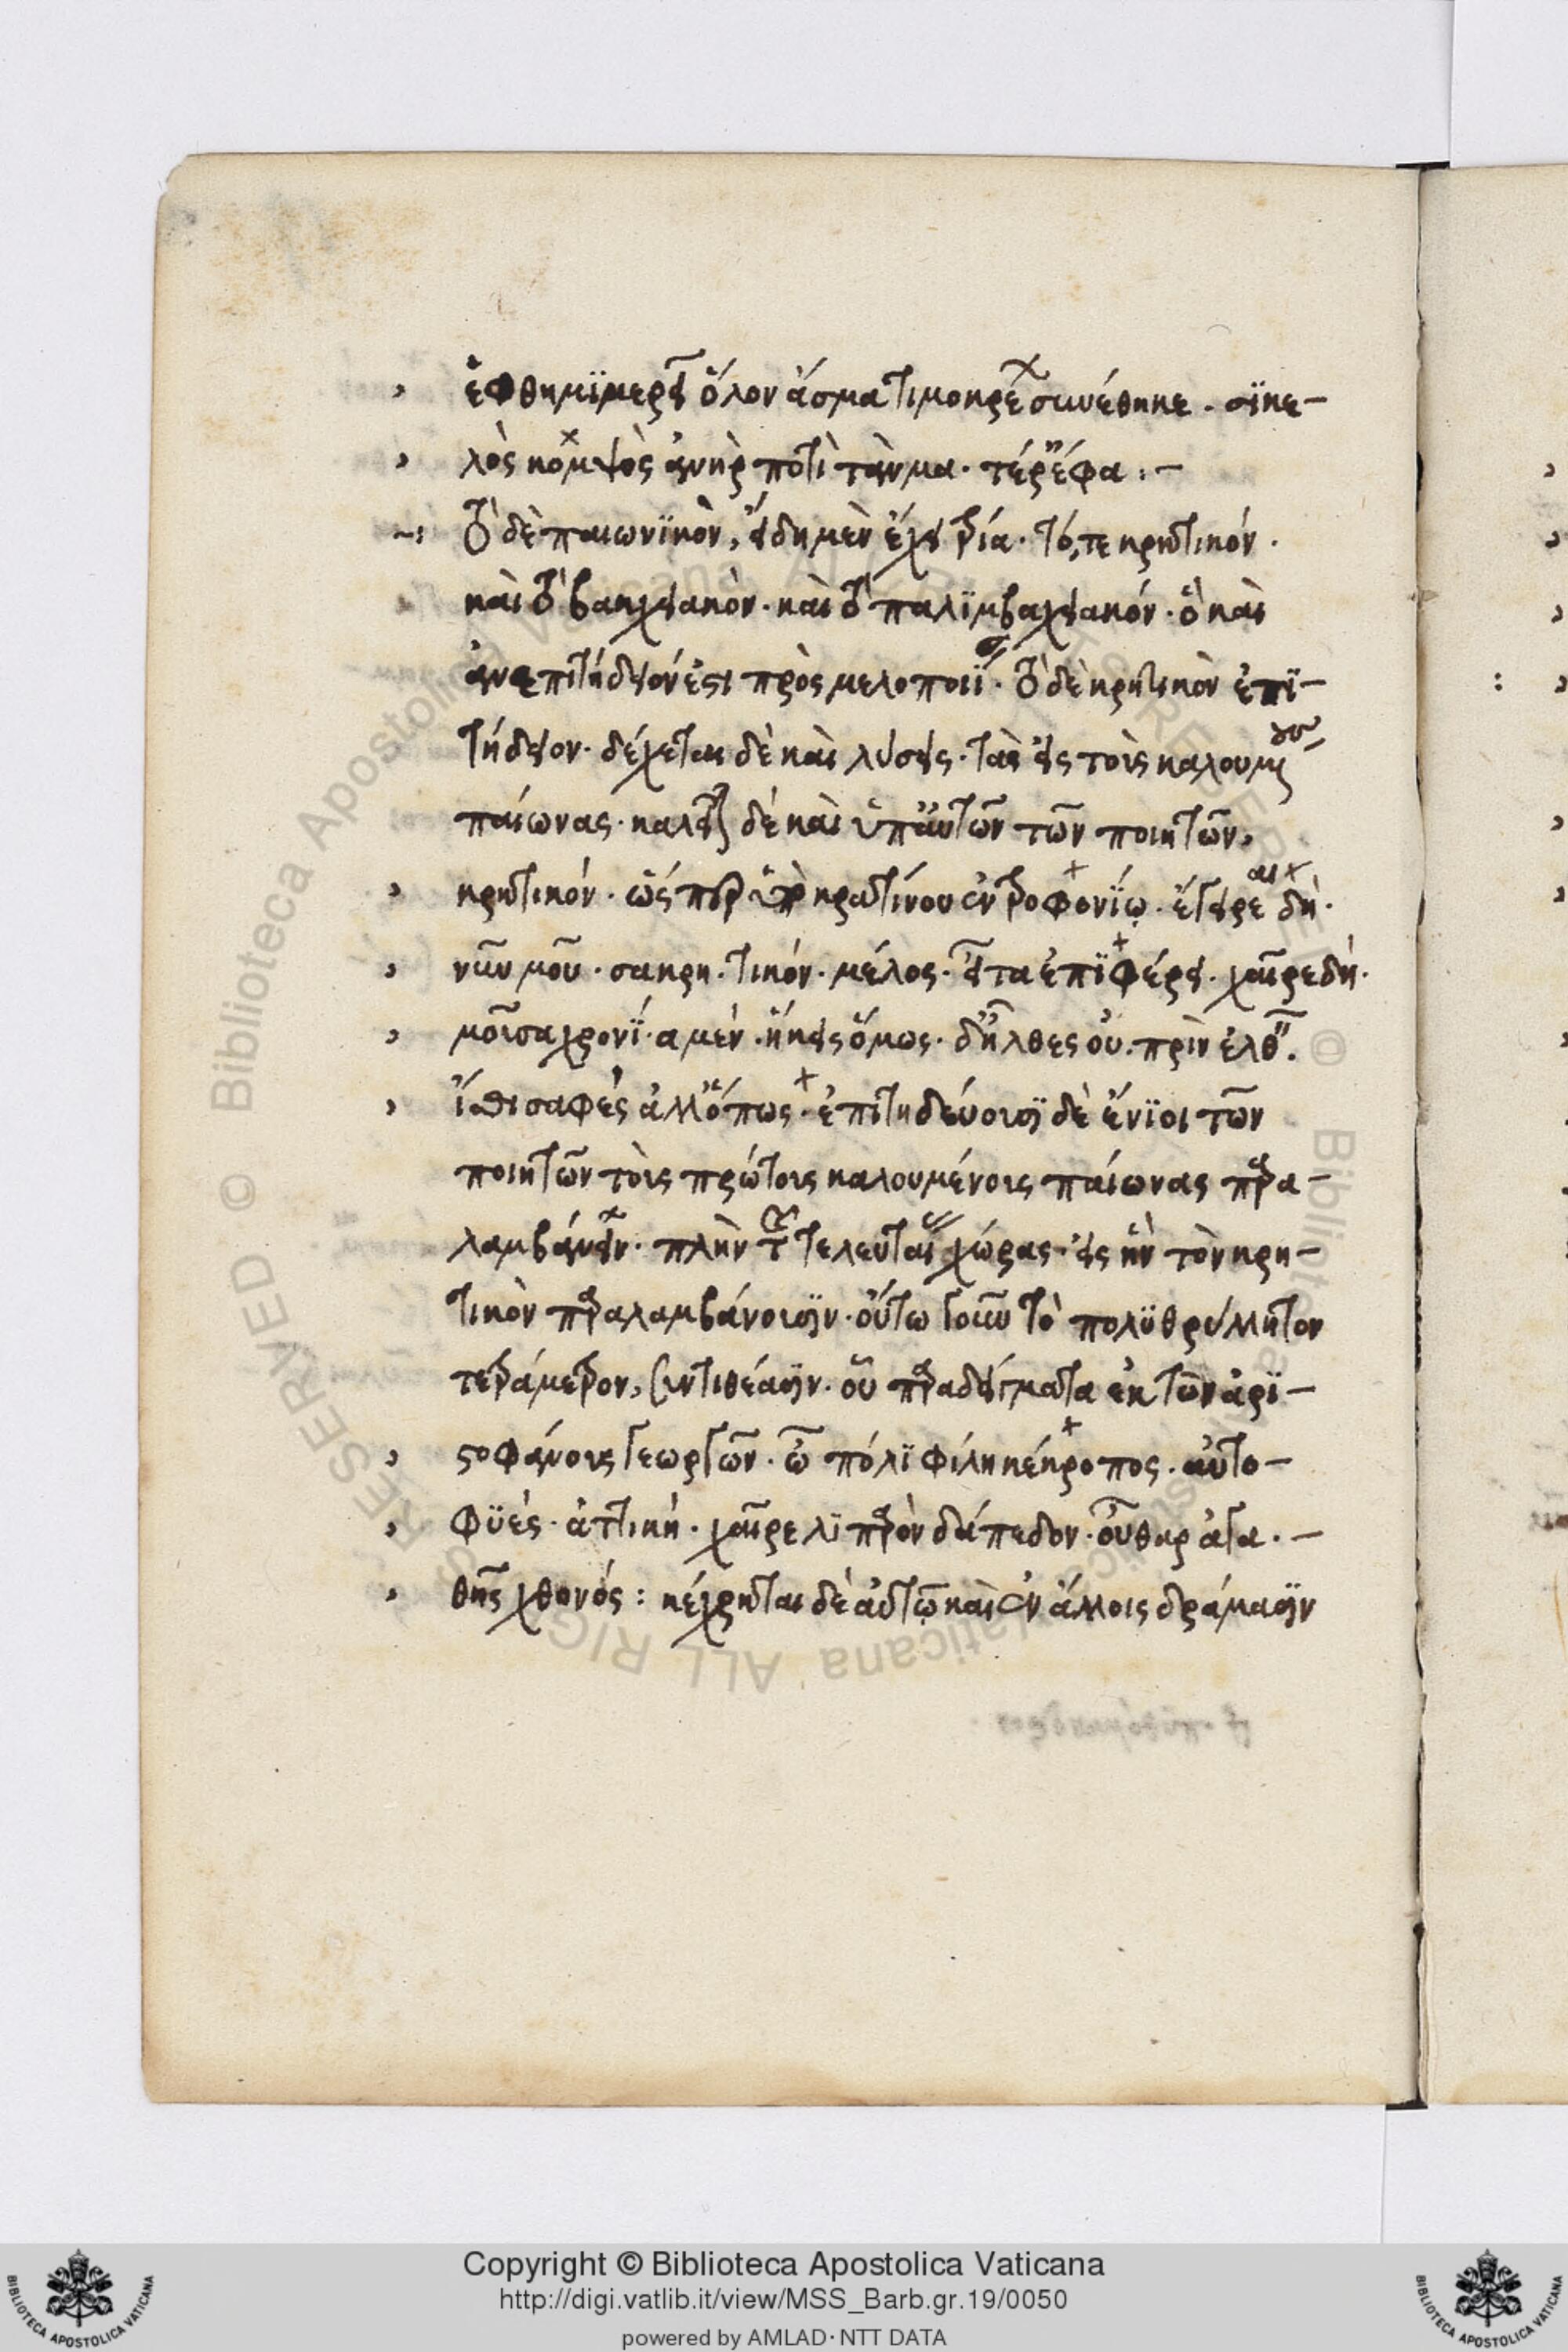 ἑφθημϊμερεῖ ὅλον άσμα τιμοκρέ συνέθηκε . σϊκε-
λὸς κομψὸς ἀνὴρ ποτὶ τὰν μα . τέρ ἔφα :-
Τὸ δὲ παιωνϊκὸν, εἴδη μὲν ἔχει τρία . τό, τε κρητικόν .
καὶ τὸ βακχειακὸν . καὶ τὸ παλϊμβαχειακόν . ὃ καὶ
ἀνεπιτήδειόν ἐστι πρὸς μελοποιΐ . Τὸ δὲ κρητικὸν ἐπϊ-
τήδειον . δέχεται δὲ καὶ λύσεις . τὰς εἰς τοὺς καλουμ
παίωνας . καλεῖται δὲ καὶ ὑπ' αὐτῶν τῶν ποιητῶν,
κρητικόν . ὥσπερ ὑπὸ κρατίνου ἐν τροφονίῳ . ἔγειρε δὴ .
νῦν μοῦ . σα κρη . τικόν . μέλος . εἶτα ἐπϊφέρει . χαῖρε δή .
μοῦσα χρονί . α μὲν . ἥκεις ὅμως . δ' ἦλθες οὐ . πρὶν ἐλθ .
ἴσθι σαφὲς ἀλλ' ὅπως . ἐπιτηδεύουσϊ δὲ ἔνϊοι τῶν
ποιητῶν τοὺς πρώτους καλουμένους παίωνας παρα-
λαμβάνειν . πλὴν τ τελευταί χώρας . εἰς ἣν τὸν κρη-
τικὸν παραλαμβάνουσϊν . οὕτω γοῦν τὸ πολϋθρύλλητον
τετράμετρον, συντιθέασϊν . οὗ παραδείγματα ἐκ τῶν ἀρϊ-
στοφάνους γεωργῶν . ὦ πόλϊ φίλη κέκροπος . αὐτο-
φϋὲς . ἀττικὴ . χαῖρε λϊπαρὸν δάπεδον . οὖθαρ ἀγα . -
θῆς χθονός : κέχρηται δὲ αὐτῷ καὶ ἐν ἄλλοις δράμασϊν
Copyright © Biblioteca Apostolica Vaticana
http://digi.vatlib.it/view/MSS_Barb.gr.19/0050
powered by AMLAD · NTT DATA